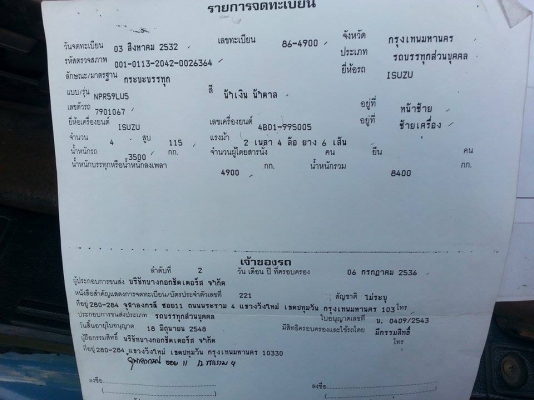 รายการจดทะเบียน
วันจดทะเบียน 03 สิงหาคม 2532 เลขทะเบียน 86-4900 จังหวัด กรุงเทพมหานคร
รหัสตรวจสภาพ 001-0113-2042-0026364 ประเภท รถบรรทุกส่วนบุคคล
ลักษณะ/มาตรฐาน กระบะบรรทุก ยี่ห้อรถ ISUZU
แบบ/รุ่น NPR59LU5 สี น้ำเงิน น้ำตาล
เลขตัวรถ 7901067 อยู่ที่ หน้าซ้าย
ยี่ห้อเครื่องยนต์ ISUZU เลขเครื่องยนต์ 4BD1-995005 อยู่ที่ ซ้ายเครื่อง
จำนวน 4 สูบ 115 แรงม้า 2 เพลา 4 ล้อ ยาง 6 เส้น
น้ำหนักรถ 3500 กก. จำนวนผู้โดยสารนั่ง คน ยืน คน
น้ำหนักบรรทุกหรือน้ำหนักลงเพลา 4900 กก. น้ำหนักรวม 8400 กก.
เจ้าของรถ
ลำดับที่ 2 วัน เดือน ปี ที่ครอบครอง 06 กรกฎาคม 2536
ผู้ประกอบการขนส่ง บริษัทบางกอกชีตเตอร์ส จำกัด
หนังสือสำคัญแสดงการจดทะเบียน/บัตรประจำตัวเลขที่ 221 สัญชาติ ไม่ระบุ
ที่อยู่ 280-284 จุฬาลงกรณ์ ซอย11 ถนนพระราม 4 แขวงวังใหม่ เขตปทุมวัน กรุงเทพมหานคร 103 โทร
ประกอบการขนส่งประเภท รถบรรทุกส่วนบุคคล ใบอนุญาตเลขที่ น. 0409/2543
วันสิ้นอายุใบอนุญาต 18 มิถุนายน 2548 มีสิทธิครอบครองและใช้รถโดย มีกรรมสิทธิ์
ผู้ถือกรรมสิทธิ์ บริษัทบางกอกชีตเตอร์ส จำกัด โทร
ที่อยู่ 280-284 แขวงวังใหม่ เขตปทุมวัน กรุงเทพมหานคร 10330
จุฬาลงกรณ์ ซอย 11 ถ.พระราม 4
ลงชื่อ ลงชื่อ